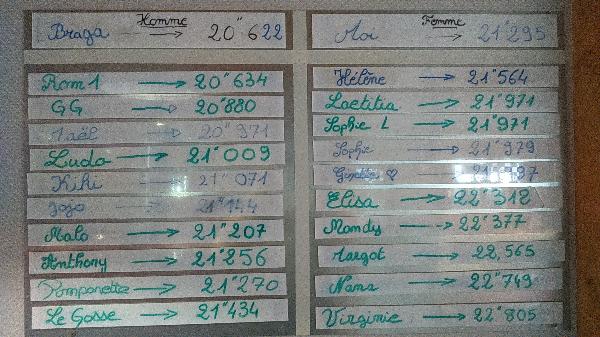 Homme
Braga → 20"622
Rom1 → 20"634
GG → 20"880
Jaël → 20"971
Ludo → 21"009
Kiki → 21"071
Jojo → 21"144
Malo → 21"207
Anthony → 21"256
Pomponette → 21"270
Le Gosse → 21"434
Femme
→ 21"295
Hélène → 21"564
Laetitia → 21"971
Sophie L → 21"971
Sophie → 21"979
♡
Elisa → 22"318
Mandy → 22"377
Margot → 22,565
Nana → 22"749
Virginie → 22"805